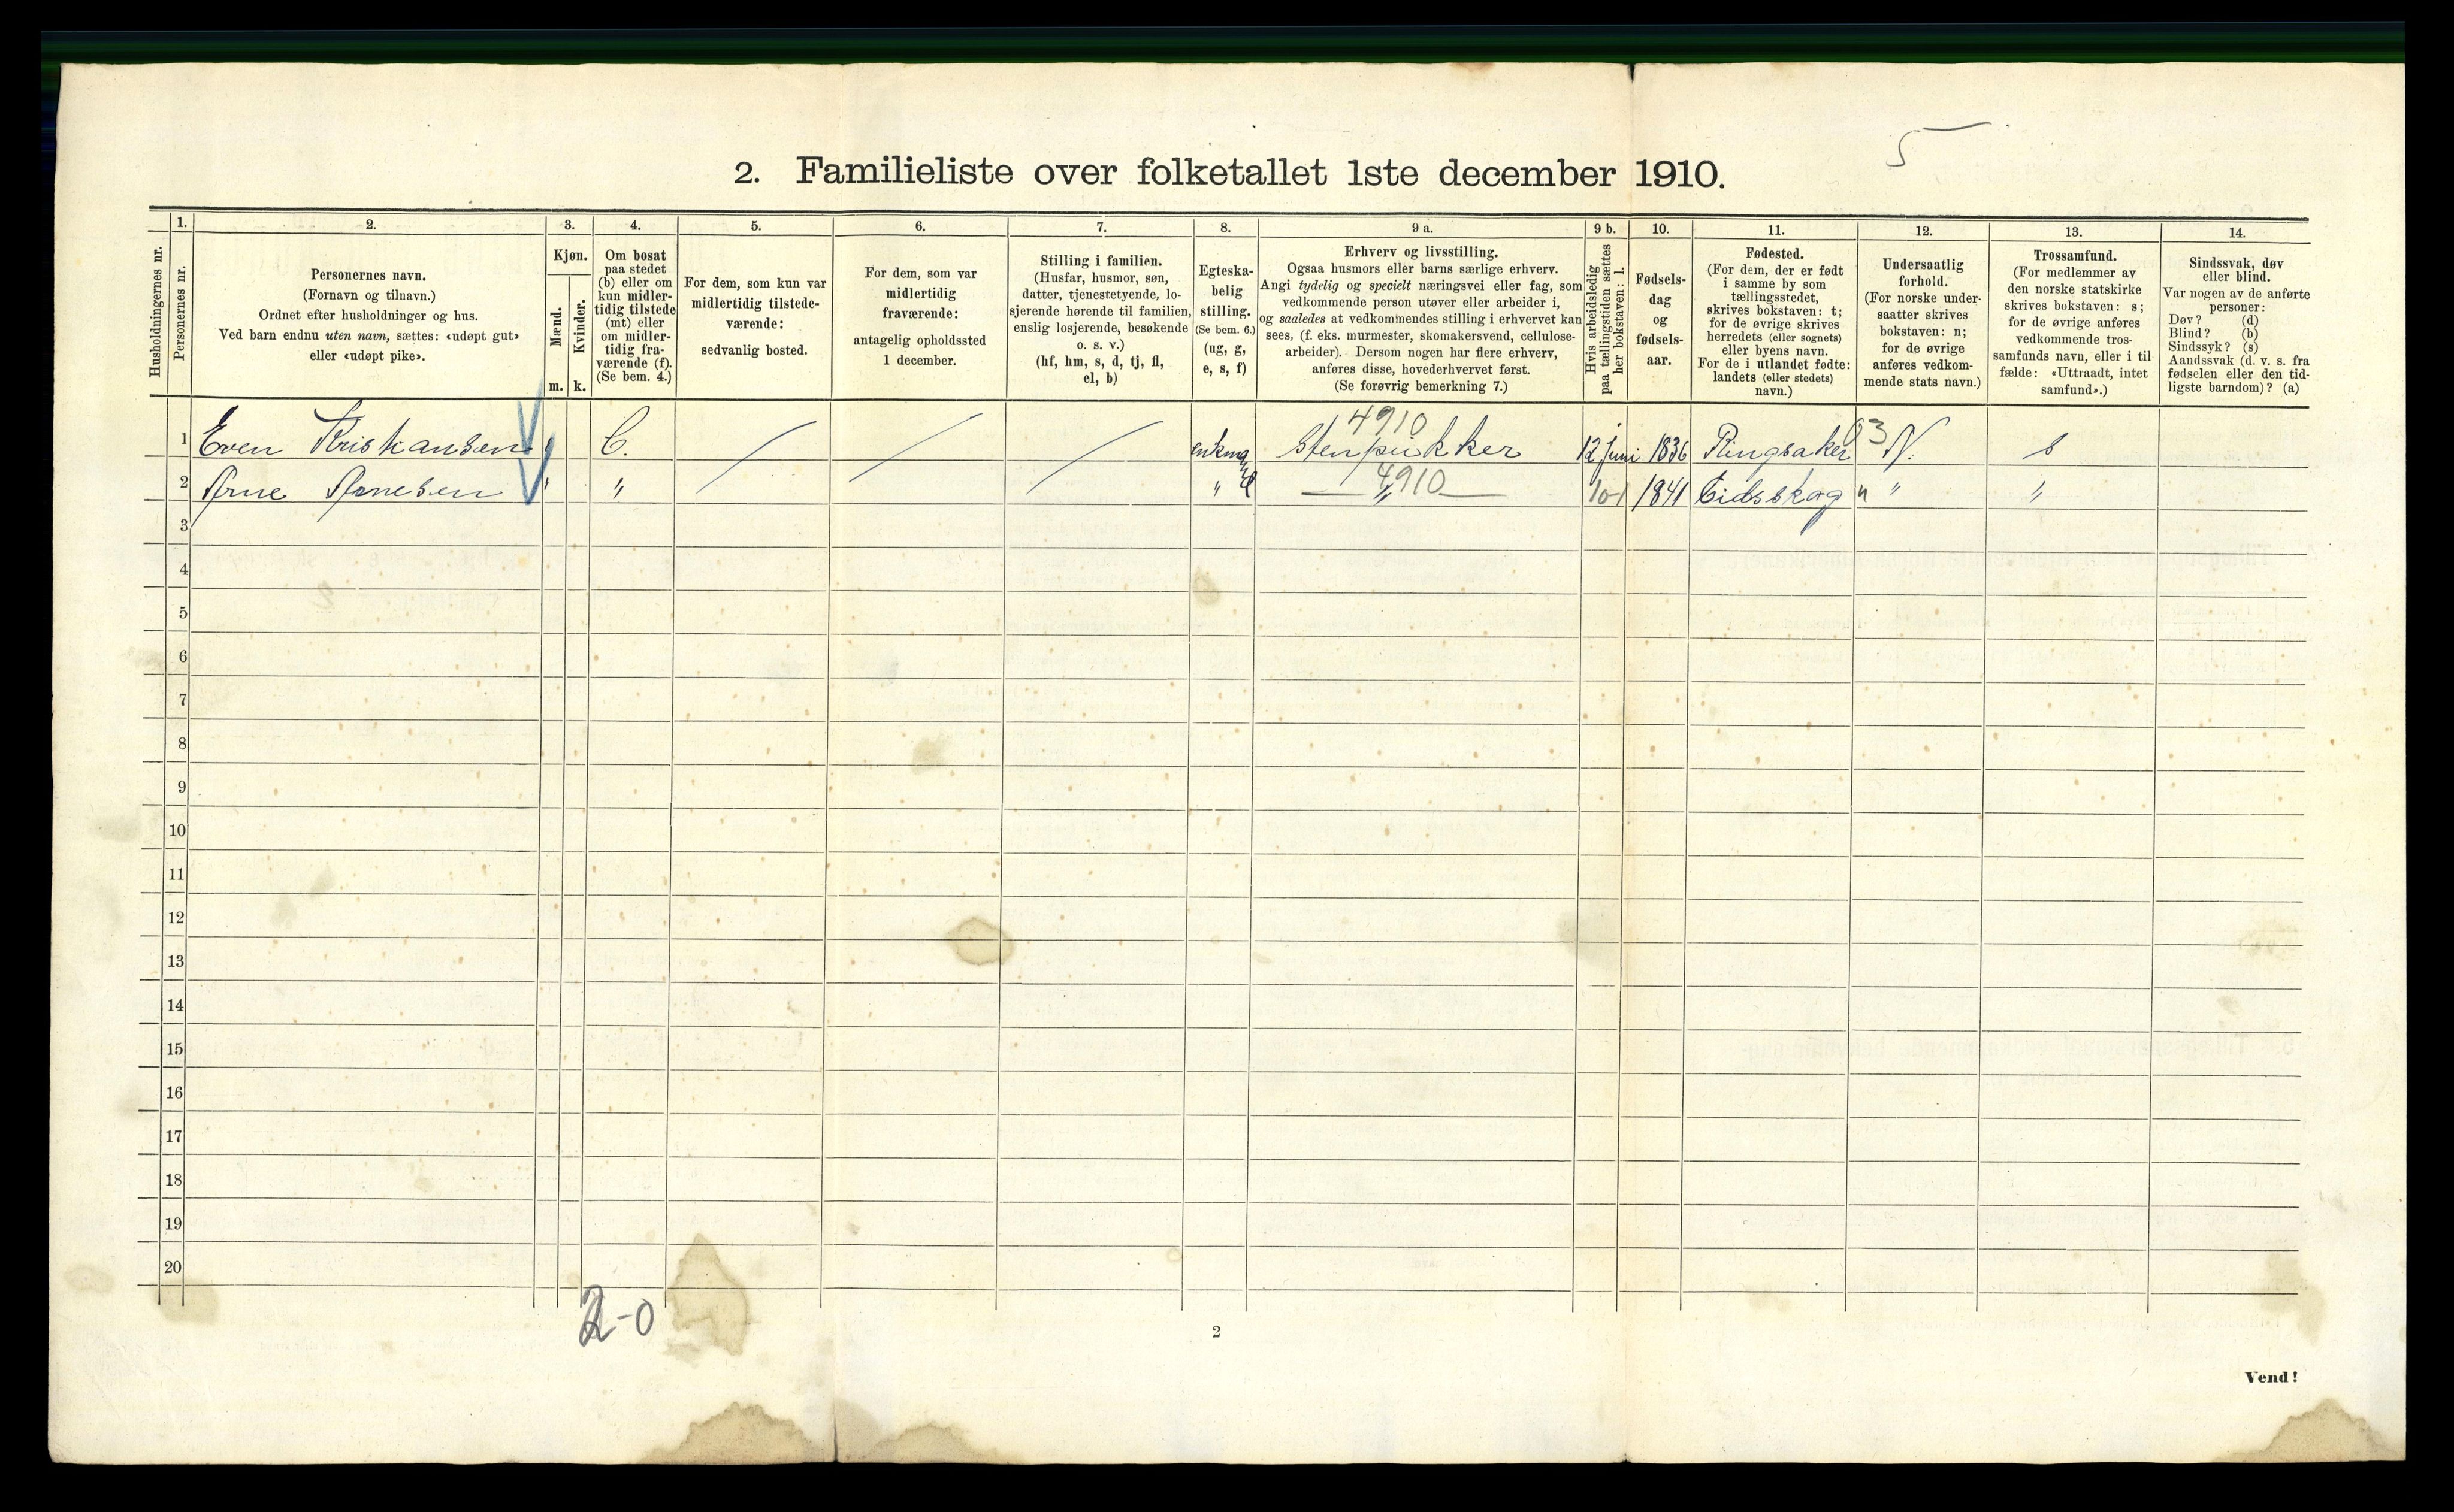 5
2. Familieliste over folketallet 1ste december 1910.
Husholdningernes nr.
1.
Personernes nr.
2.
Personernes navn.
(Fornavn og tilnavn.)
Ordnet efter husholdninger og hus.
Ved barn endnu uten navn, sættes: «udøpt gut»
eller «udøpt pike».
3.
Kjøn.
Mænd.
Kvinder.
m. k.
4.
Om bosat
paa stedet
(b) eller om
kun midler-
tidig tilstede
(mt) eller
om midler-
tidig fra-
værende (f).
(Se bem. 4.)
5.
For dem, som kun var
midlertidig tilstede-
værende:
sedvanlig bosted.
6.
For dem, som var
midlertidig
fraværende:
antagelig opholdssted
1 december.
7.
Stilling i familien.
(Husfar, husmor, søn,
datter, tjenestetyende, lo-
sjerende hørende til familien,
enslig losjerende, besøkende
o. s. v.)
(hf, hm, s, d, tj, fl,
el, b)
8.
Egteska-
belig
stilling.
(Se bem. 6.)
(ug, g,
e, s, f)
9 a.
Erhverv og livsstilling.
Ogsaa husmors eller barns særlige erhverv.
Angi tydelig og specielt næringsvei eller fag, som
vedkommende person utøver eller arbeider i,
og saaledes at vedkommendes stilling i erhvervet kan
sees, (f. eks. murmester, skomakersvend, cellulose-
arbeider). Dersom nogen har flere erhverv,
anføres disse, hovederhvervet først.
(Se forøvrig bemerkning 7.)
9 b.
Hvis arbeidsledig
paa tællingstiden sættes
her bokstaven: l.
10.
Fødsels-
dag
og
fødsels-
aar.
11.
Fødested.
(For dem, der er født
i samme by som
tællingsstedet,
skrives bokstaven: t;
for de øvrige skrives
herredets (eller sognets)
eller byens navn.
For de i utlandet fødte:
landets (eller stedets)
navn.)
12.
Undersaatlig
forhold.
(For norske under-
saatter skrives
bokstaven: n;
for de øvrige
anføres vedkom-
mende stats navn.)
13.
Trossamfund.
(For medlemmer av
den norske statskirke
skrives bokstaven: s;
for de øvrige anføres
vedkommende tros-
samfunds navn, eller i til-
fælde: «Uttraadt, intet
samfund».)
14.
Sindssvak, døv
eller blind.
Var nogen av de anførte
personer:
Døv? (d)
Blind? (b)
Sindssyk? (s)
Aandssvak (d. v. s. fra
fødselen eller den tid-
ligste barndom)? (a)
4910 03
1 Even Kristiansen enkmand Stenpukker 12 juni 1836 Ringsaker N. s
4910
2 Arne Arnesen " " e " 10-1 1841 Eidsskog n " "
3
4
5
6
7
8
9
10
11
12
13
14
15
16
17
18
19
20
2-0
2
Vend!